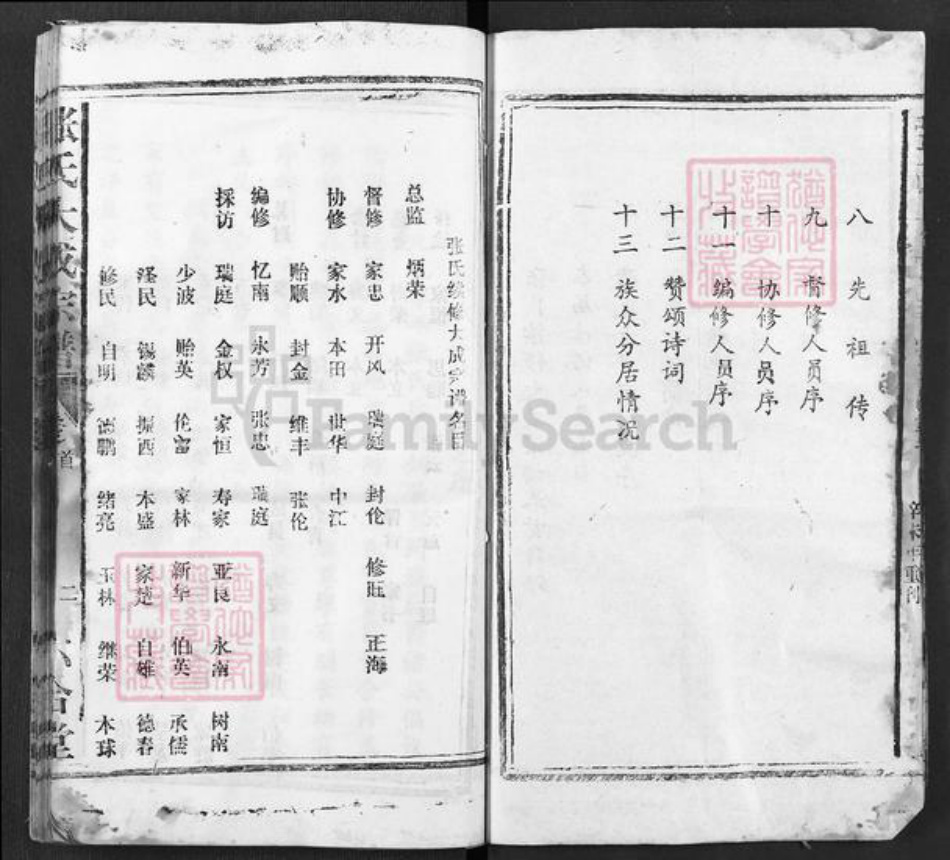 八 先祖传
九 督修人员序
十 协修人员序
十一 编修人员序
十二 赞颂诗词
十三 族众分居情况
张氏续修大成宗谱名目
总监 炳荣
督修 家忠 开风 瑞庭 封伦 修旺 正海
协修 家水 本田 世华 中江
贻顺 封金 维丰 张伦
编修 忆南 永芳 张忠 瑞庭
採访 瑞庭 金权 家恒 寿家 亚良 永南 树南
少波 贻英 伦富 家林 新华 伯英 承儒
泽民 锡麟 振西 本盛 家楚 自雄 德春
修民 自明 德鹏 绪亮 玉林 继荣 本球
张氏大成宗谱 卷首 二
FamilySearch